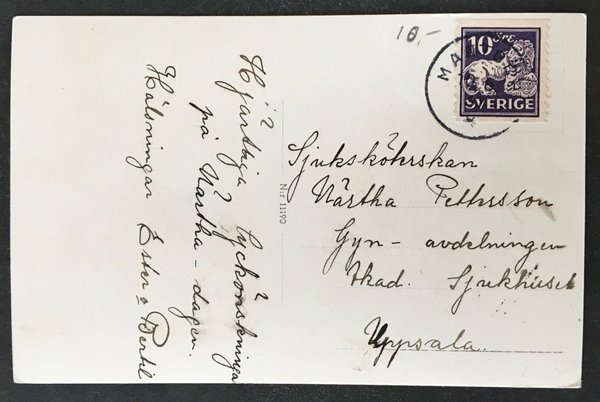 10,-
10
SVERIGE
MA
Hjärtliga lyckönskningar
på Märtha-dagen.
Hälsningar Ester o Bertil
N:r 11190
Sjuksköterskan
Märtha Pettersson
Gyn- avdelningen
Akad. Sjukhuset
Uppsala.